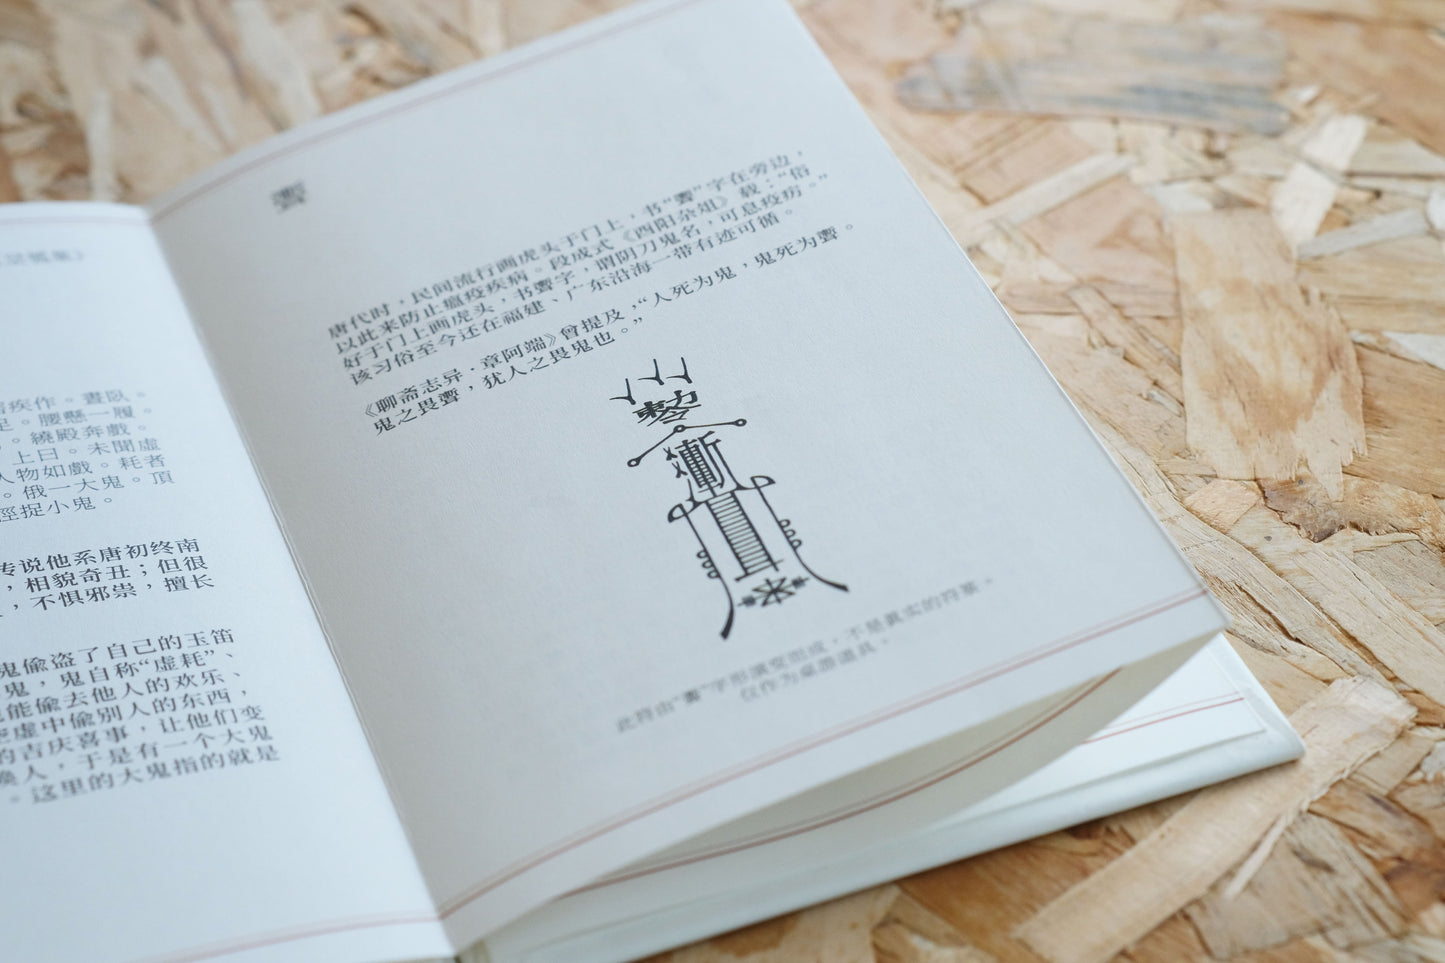 疾作。晝臥。
足。腰懸一履。
。繞殿奔戲。
上曰。未聞虛
人物如戲。耗者
。俄一大鬼。頂
徑捉小鬼。
传说他系唐初终南
，相貌奇丑；但很
，不惧邪祟，擅长
鬼偷盗了自己的玉笛
鬼，鬼自称“虚耗”、
能偷去他人的欢乐、
虚中偷别人的东西，
的吉庆喜事，让他们变
唤人，于是有一个大鬼
。这里的大鬼指的就是
聻
唐代时，民间流行画虎头于门上，书“聻”字在旁边，
以此来防止瘟疫疾病。段成式《酉阳杂俎》载：“俗
好于门上画虎头，书聻字，谓阴刀鬼名，可息疫疠。”
该习俗至今还在福建、广东沿海一带有迹可循。
《聊斋志异·章阿端》曾提及，“人死为鬼，鬼死为聻。
鬼之畏聻，犹人之畏鬼也。”
此符由“聻”字形演变而成，不是真实的符箓。
仅作为桌游道具。